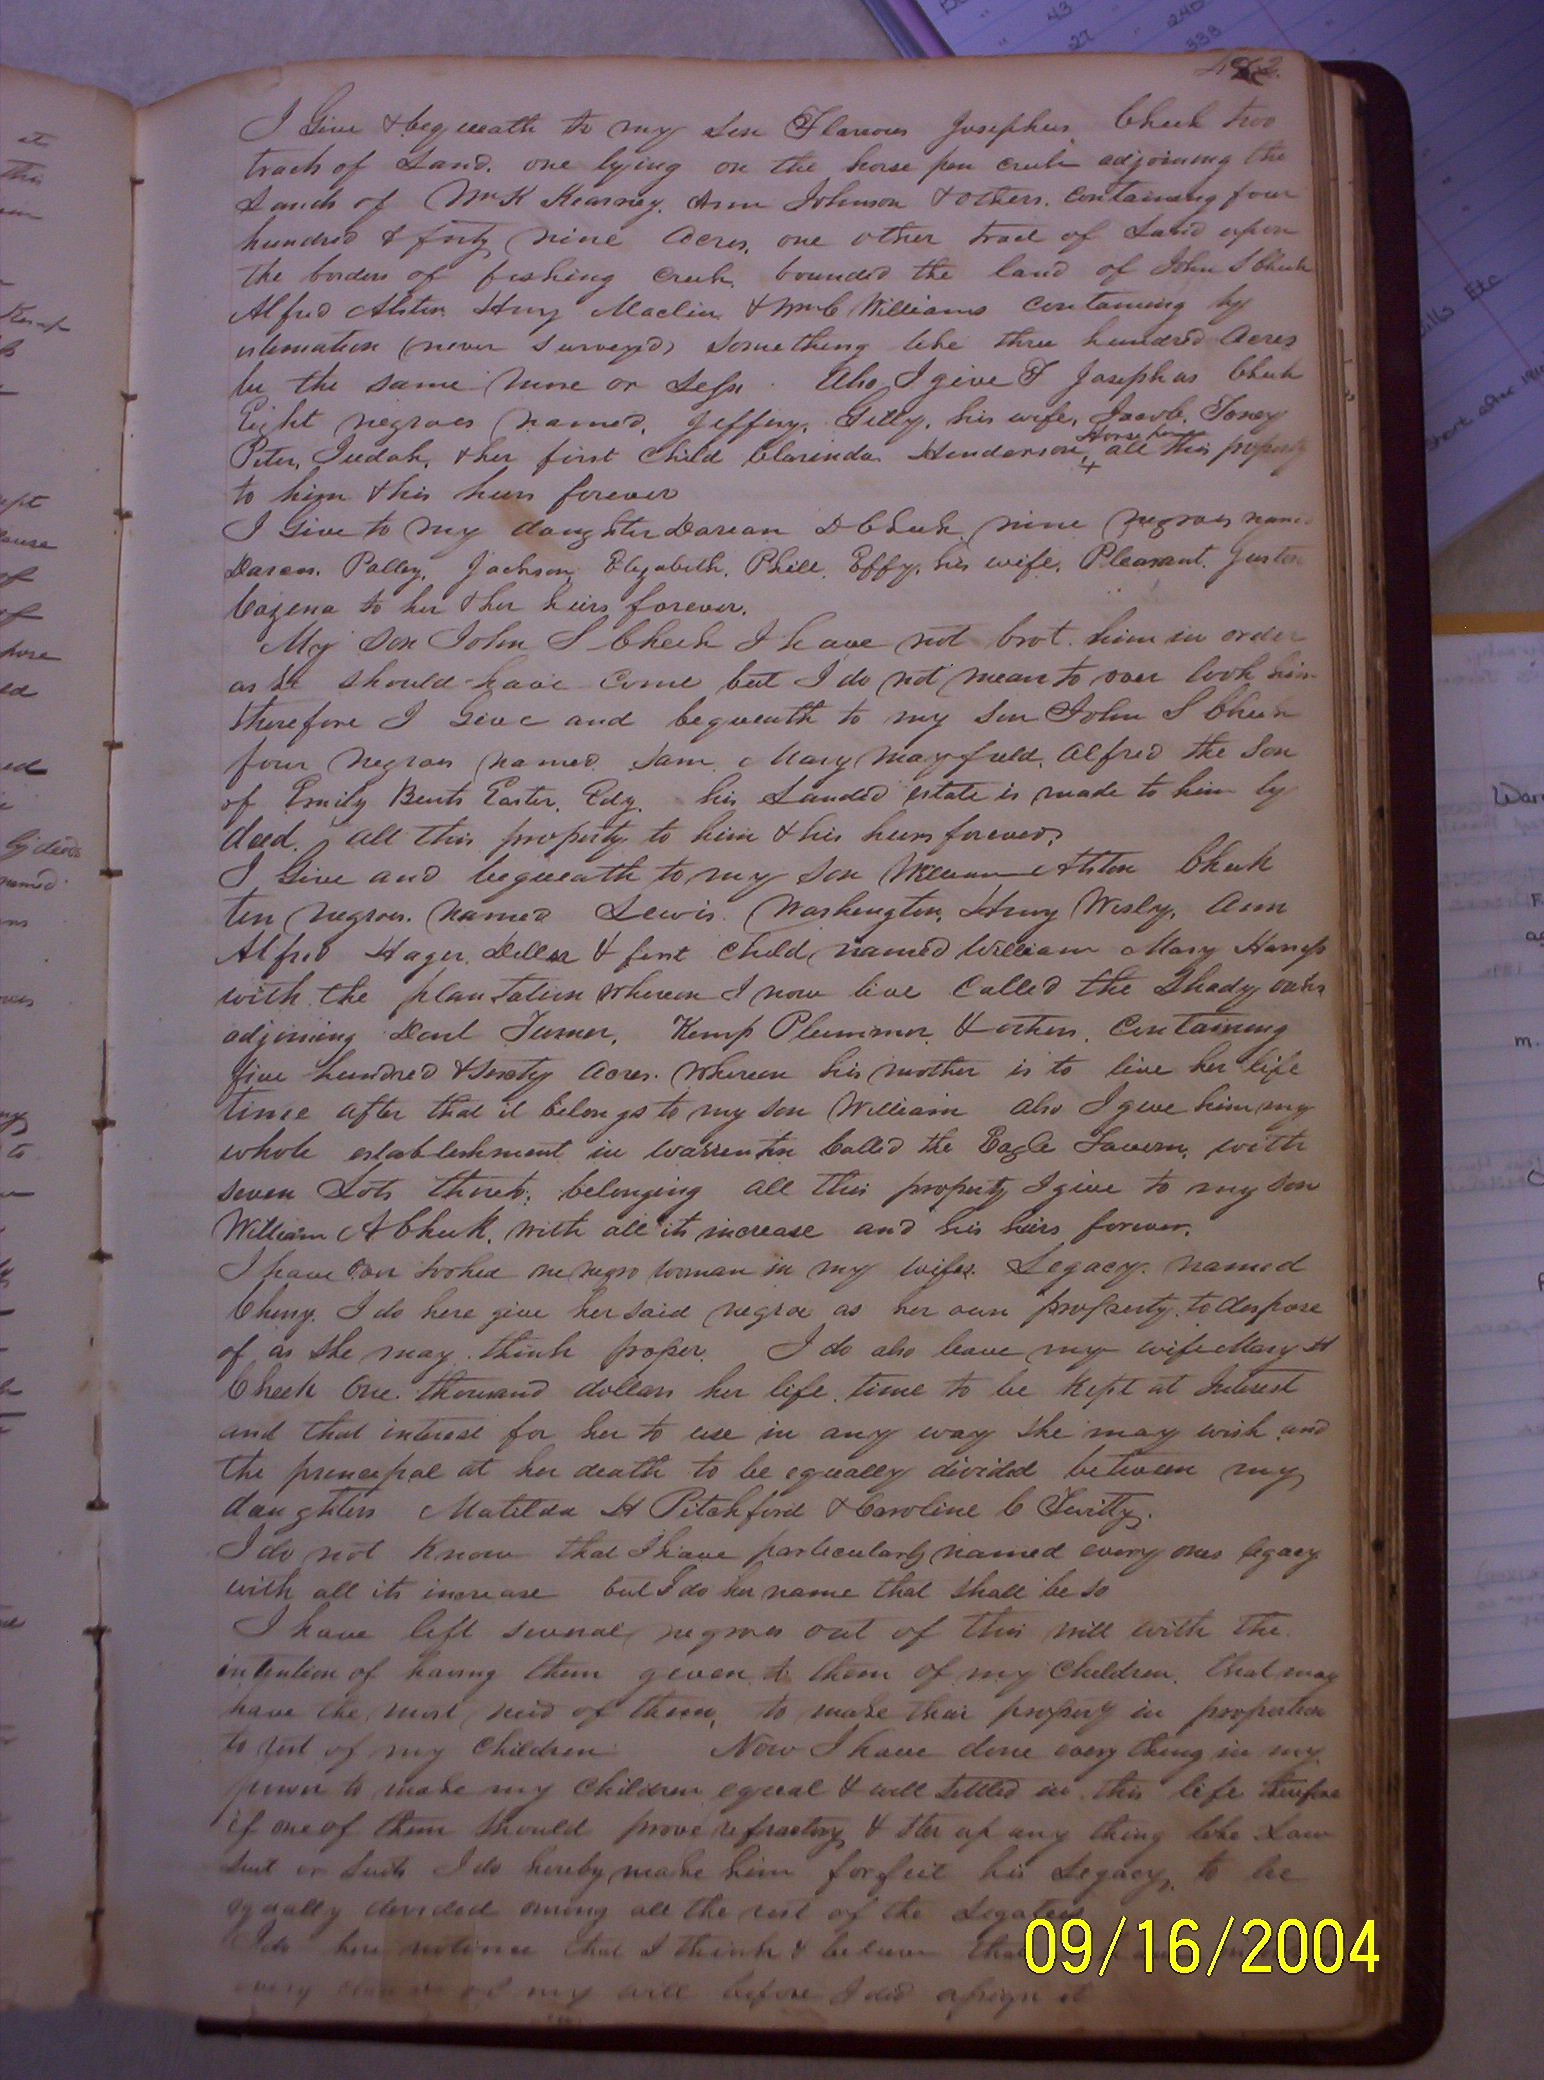 I Give & bequeath to my son Flavious Josephus Cheek two
tracts of Land. one lying on the horse pen creek adjoining the
Lands of Wm K Kearney. Johnson & others. containing four
hundred & forty nine Acres. one other tract of Land upon
the borders of fishing creek. bounded the land of John S Cheek
Alfred Alston Henry Maclin & Wm C Williams containing by
estimation (never surveyed) something like three hundred Acres
be the same more or Less. Also I give F Josephas Cheek
Eight negroes named, Jeffery, Gilly, his wife, Jacob, Toney
Peter, Judah, & her first child Clarinda Henderson, all this property
to him & his heirs forever
I Give to my daughter Darean D Cheek nine negroes named
Polley, Jackson, Elizabeth. Phill. Effy, his wife, Pleasant.
to her & her heirs forever.
My son John S Cheek I have not brot him in order
as he should have come but I do not mean to over look him
therefore I Give and bequeath to my son John S Cheek
four negroes named Sam Mary mayfield, Alfred the son
of Emily Easter. his Landed estate is made to him by
deed. all this property to him & his heirs forever.
I Give and bequeath to my son William Alston Cheek
ten negroes. named Lewis. Washington, Henry Wesly, Ann
Alfred Hager, & first child named William Mary
with the plantation whereon I now live called the Shady oaks
adjoining Turner, Kemp Plummer & others. containing
five hundred & sixty Acres. whereon his mother is to live her life
time after that it belongs to my son William also I give him my
whole establishment in Warrenton Called the Eagle Tavern, with
seven Lots thereto belonging all this property I give to my son
William A Cheek, with all its increase and his heirs forever.
I have over looked one negro woman in my wifes. Legacy. named
I do here give her said negroe as her own property. to dispose
of as she may think proper. I do also leave my wife Mary H
Cheek One thousand dollars her life time to be kept at Interest
and that interest for her to use in any way she may wish and
the principal at her death to be equally divided between my
daughters Matilda H Pitchford & Caroline C Twitty.
I do not know that I have particularly named every ones legacy
with all its increase but I do her name that shall be so
I have left several negroes out of this will with the
intention of having them given to them of my children. that may
have the most need of them, to make their property in proportion
to rest of my children Now I have done every thing in my
power to make my children equal & well settled in this life therefore
if one of them should prove refractory & stir up any thing like Law
suit or suits I do hereby make him forfeit his Legacy, to be
equally devided among all the rest of the Legatees
I do here notice that I think & believe that
every of my will before I did assign it
09/16/2004